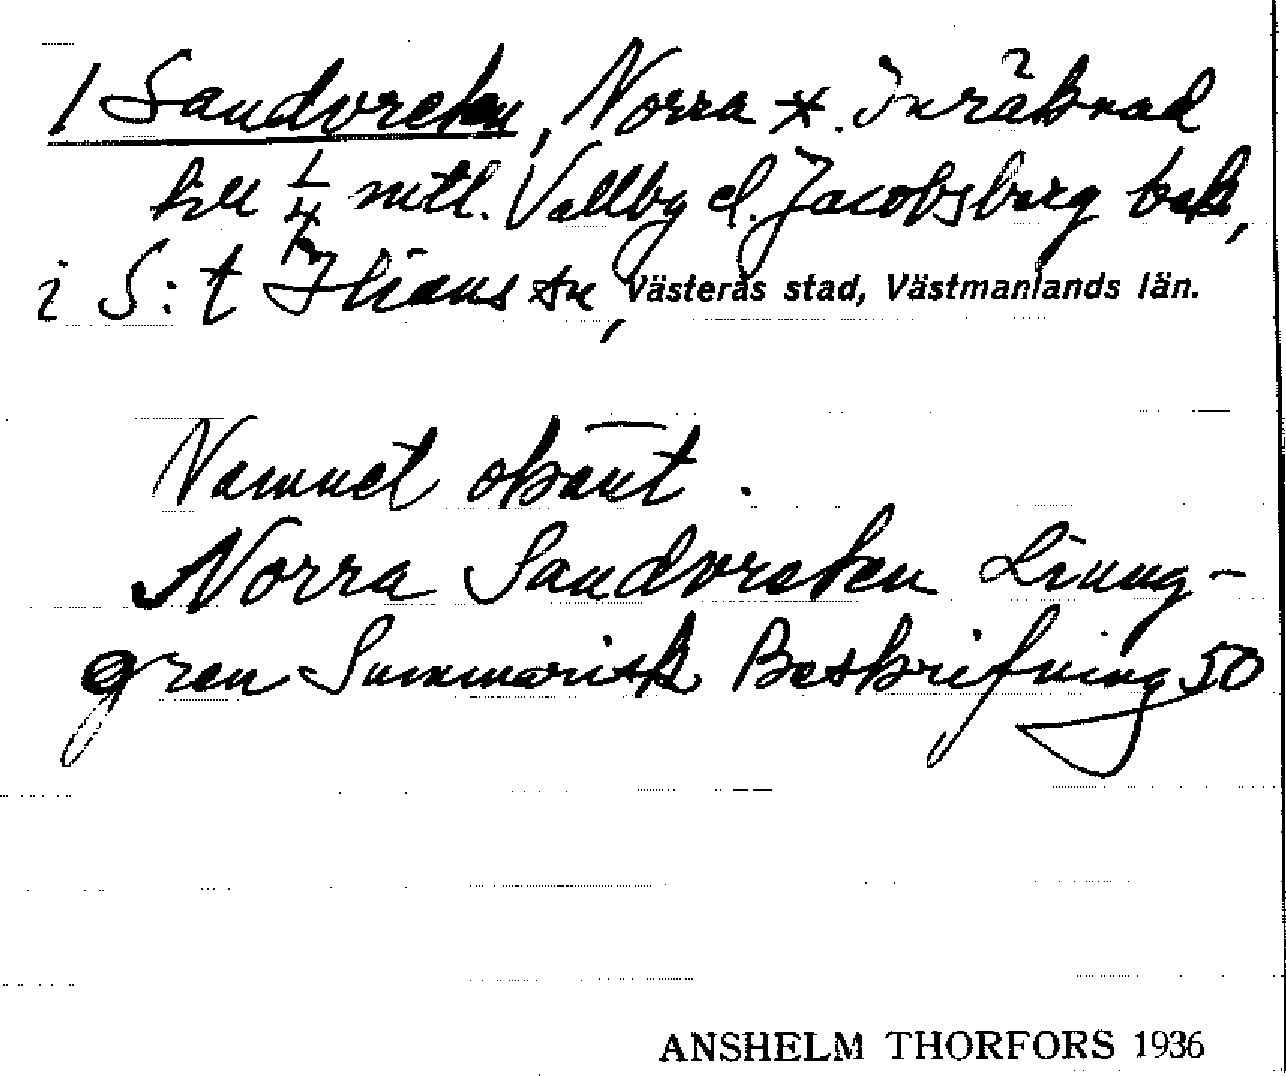 1 Sandvreten, Norra *. Inräknad
till 1/4 mtl. Vallby el. Jacobsberg
i S:t Ilians sn, Västerås stad, Västmanlands län.
Namnet okänt.
Norra Sandvreten Ljung-
gren Summarisk Beskrifning 50
ANSHELM THORFORS 1936